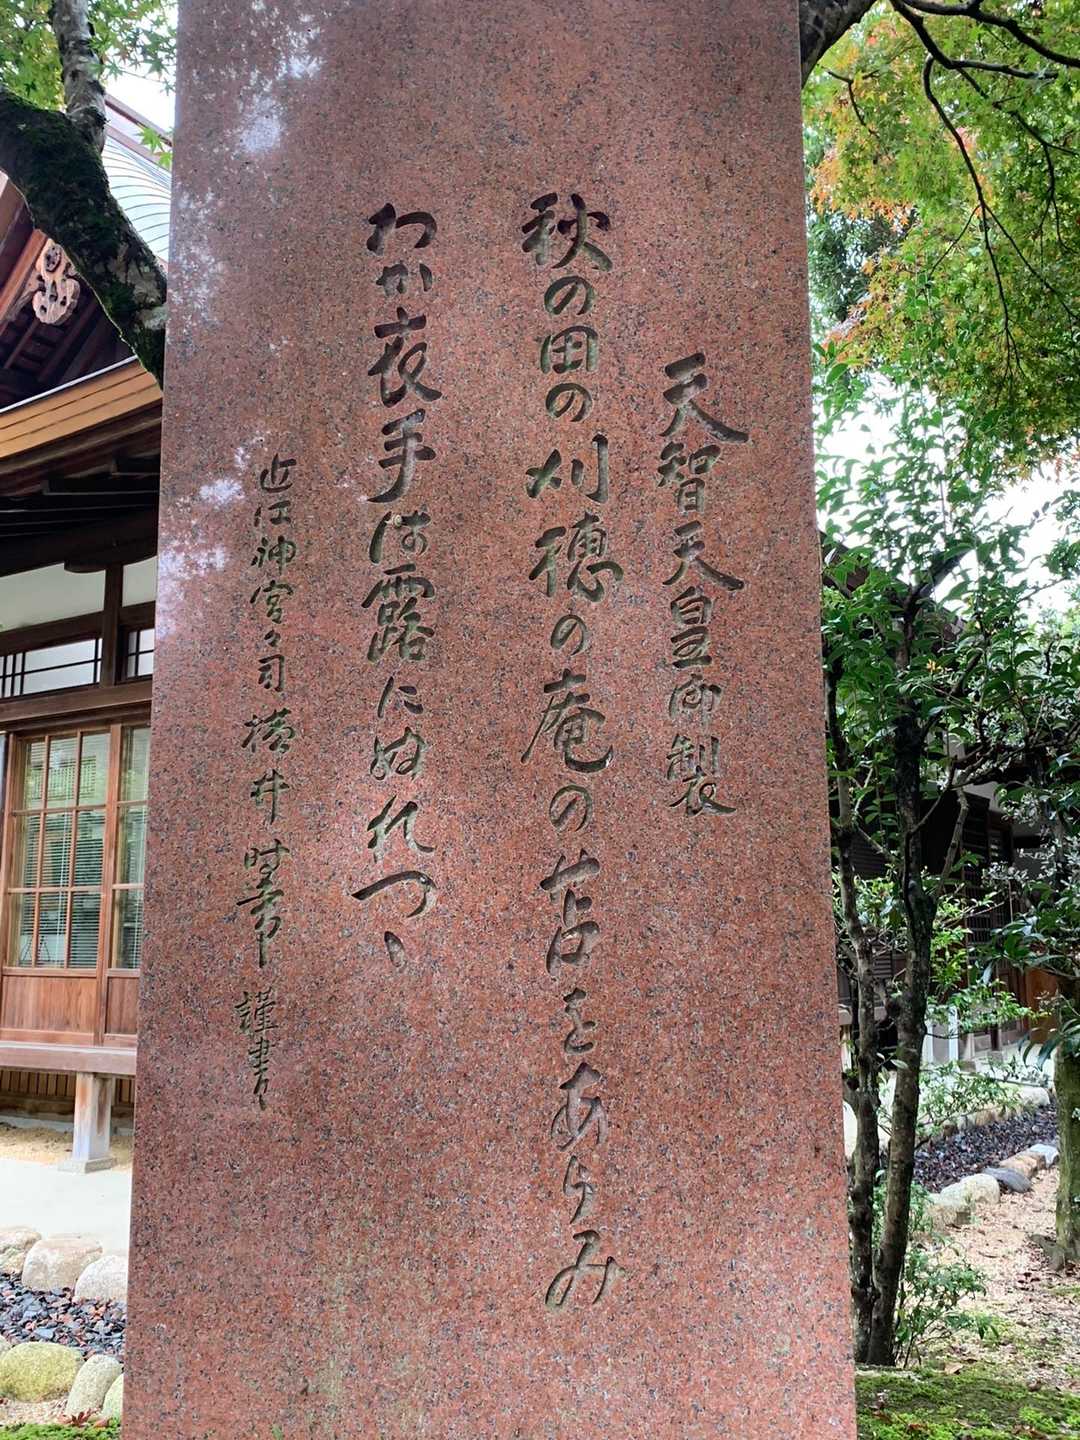 天智天皇御製
秋の田の刈穂の庵の苫をあらみ
わか衣手は露にぬれつゝ
近江神宮々司 横井時常 謹書